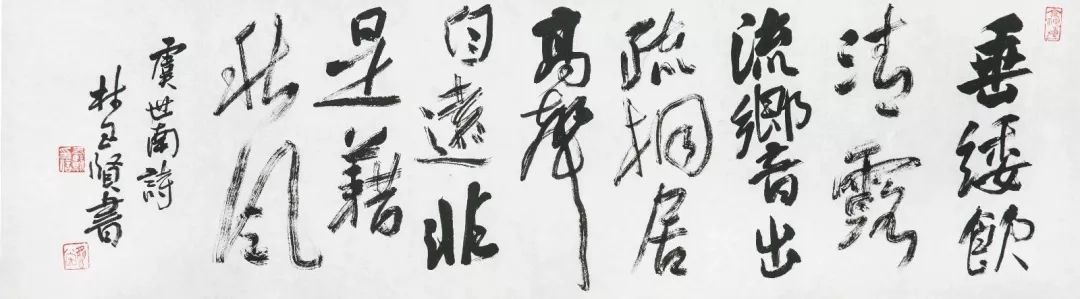 垂緌飲
清露
流響出
疏桐居
高聲
自遠非
是藉
秋風
虞世南詩
杜賢書